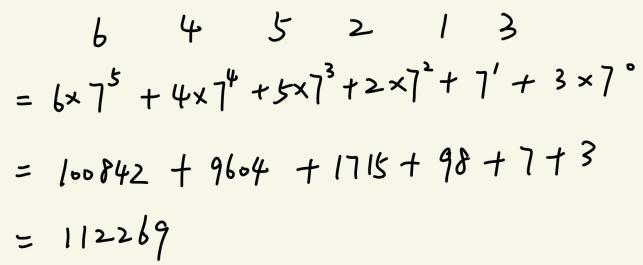 6 4 5 2 1 3
= 6×7⁵ + 4×7⁴ + 5×7³ + 2×7² + 7¹ + 3×7⁰
= 100842 + 9604 + 1715 + 98 + 7 + 3
= 112269